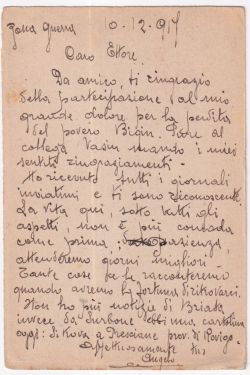 Zona Guerra 10.12.917
Caro Ettore.
Da amico, ti ringrazio
della partecipazione al mio
grande dolore per la perdita
del povero Bigin. Pure al
collega Vasin mando i miei
sentiti ringraziamenti.
Ho ricevuto tutti i giornali
inviatimi e ti sono riconoscente.
La vita qui, sotto tutti gli
aspetti, non è più comoda
come prima; pazienza
attenderemo giorni migliori.
Tante cose ce le racconteremo
quando avremo la fortuna di ritrovarci.
Non ho più notizie di Briata
invece da Surbone ebbi una cartolina
oggi. Si trova a Trecciane prov. di Rovigo.
Affettuosamente tuo